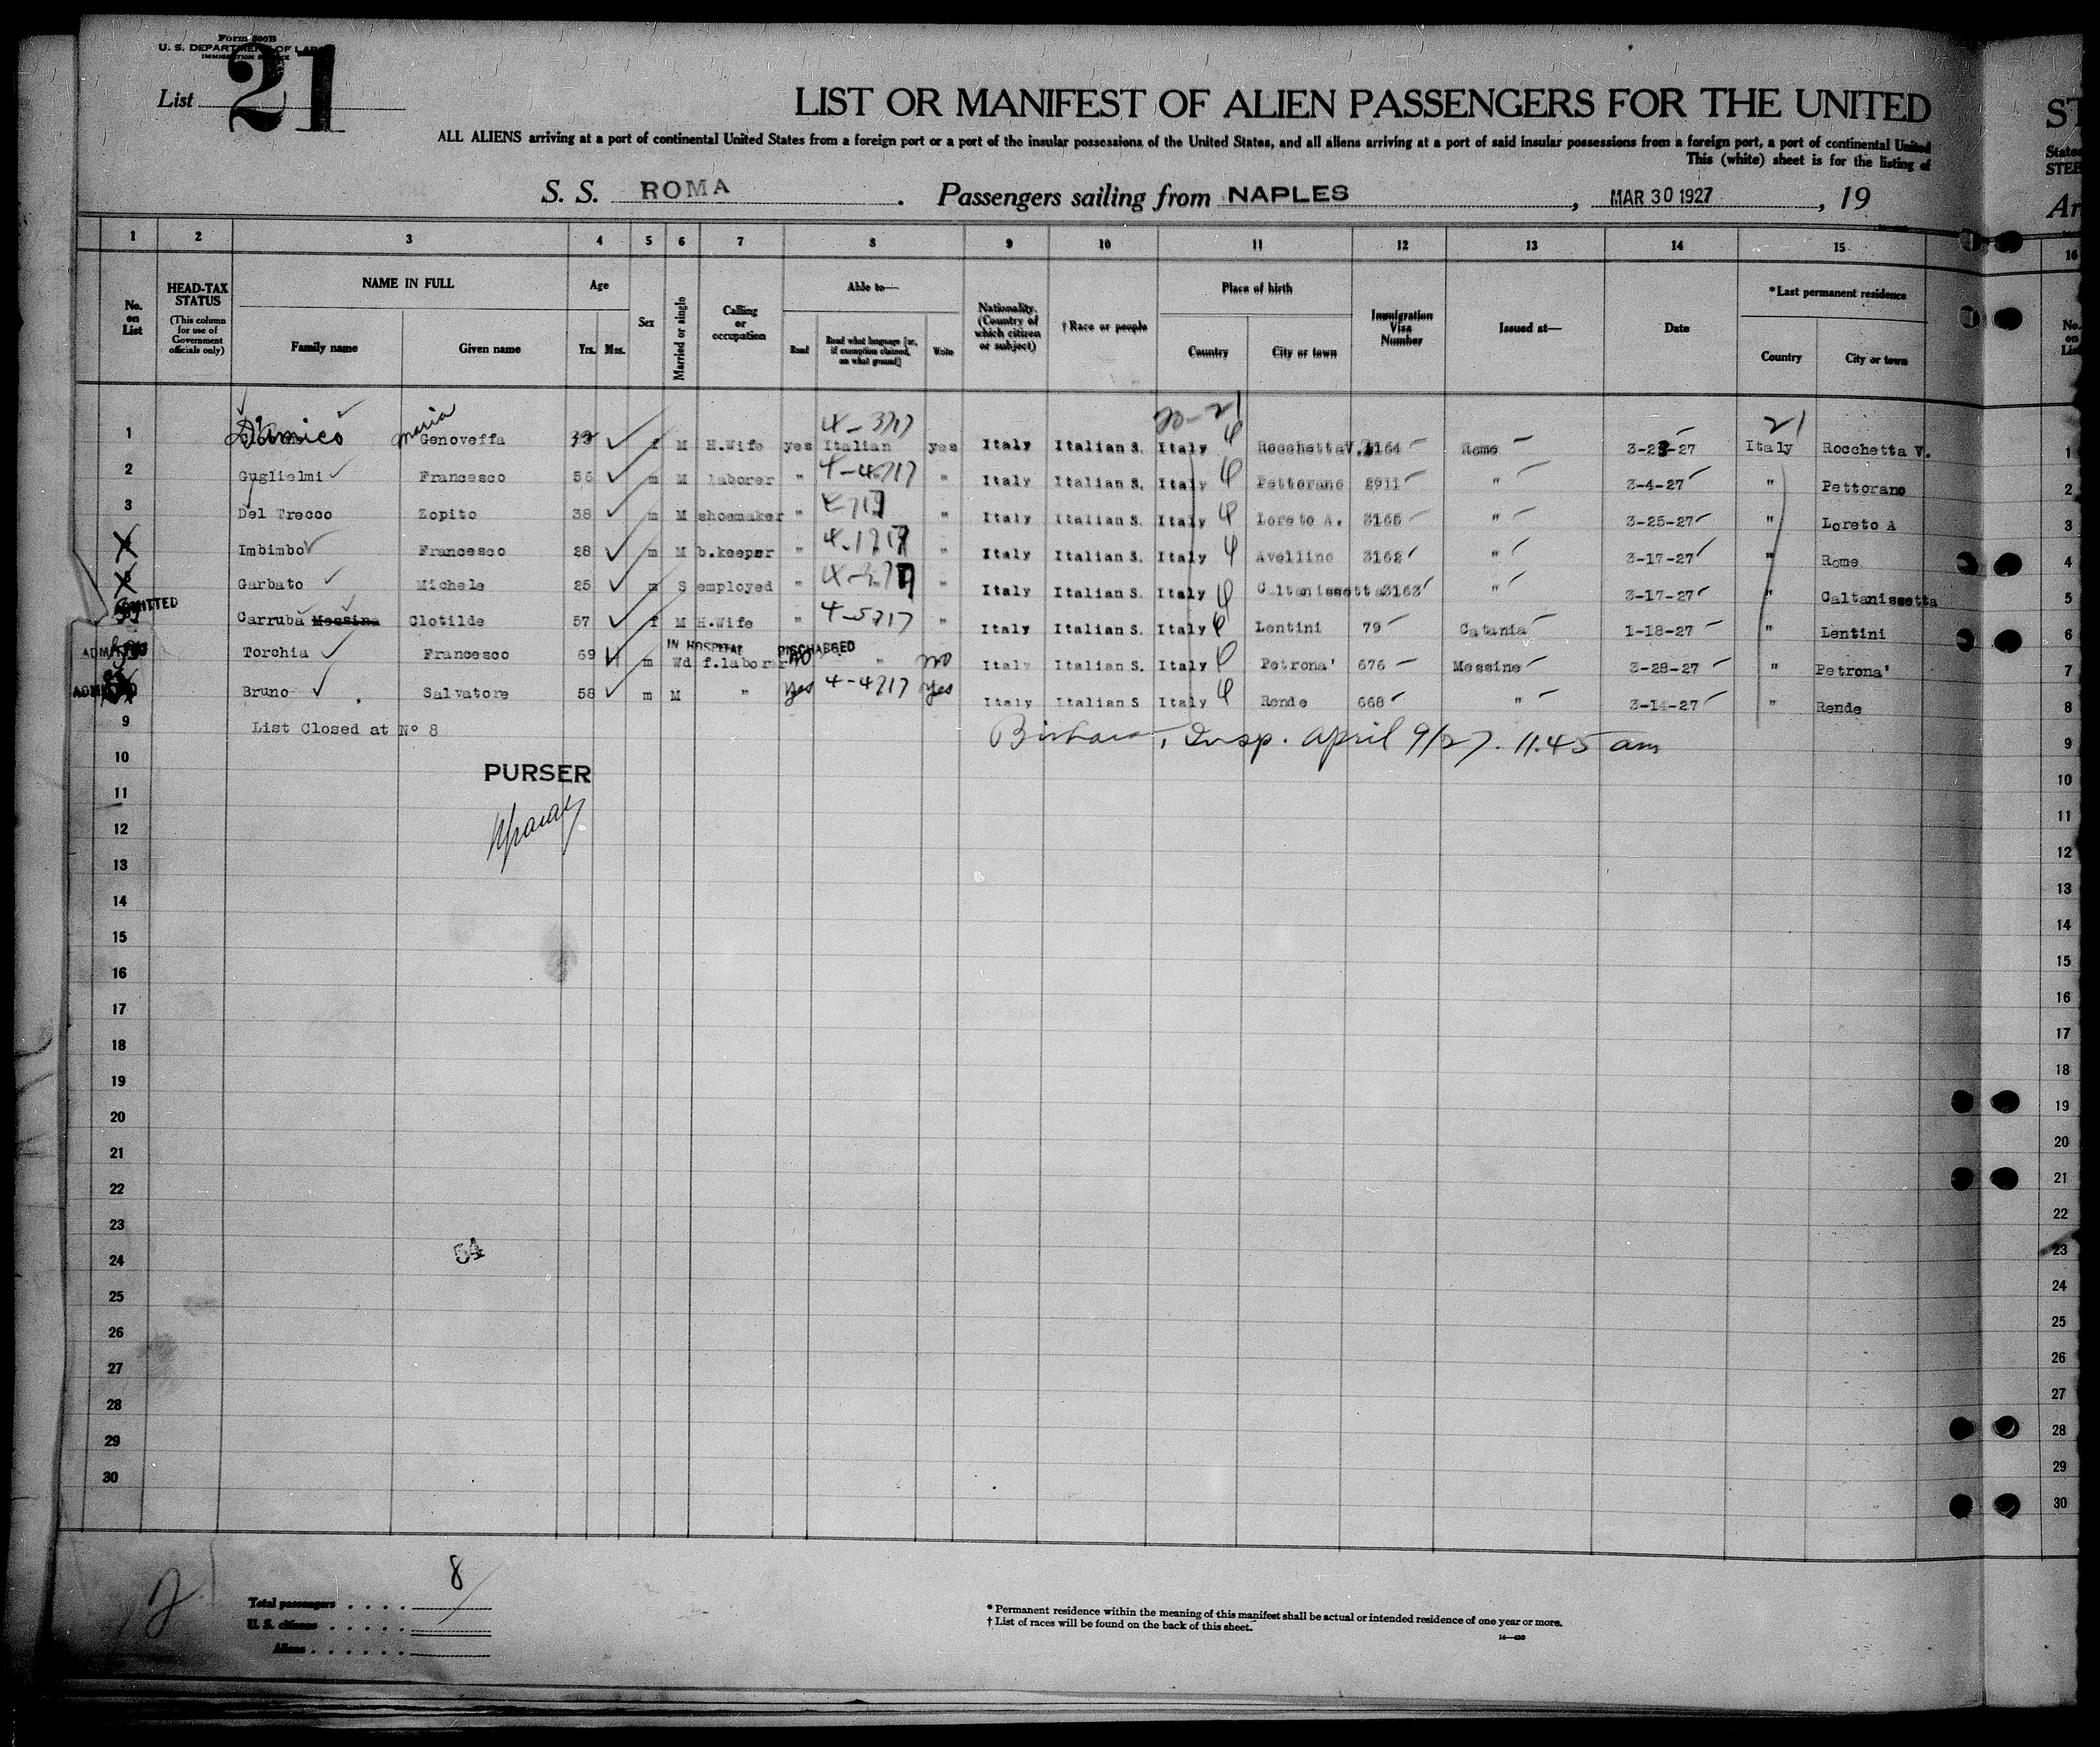 Form 500B
U. S. DEPARTMENT OF LABOR
IMMIGRATION SERVICE
List 21
LIST OR MANIFEST OF ALIEN PASSENGERS FOR THE UNITED
ALL ALIENS arriving at a port of continental United States from a foreign port or a port of the insular possessions of the United States, and all aliens arriving at a port of said insular possessions from a foreign port, a port of continental United
This (white) sheet is for the listing of
S. S. ROMA . Passengers sailing from NAPLES , MAR 30 1927 , 19
1 2 3 4 5 6 7 8 9 10 11 12 13 14 15
No. on List
HEAD-TAX STATUS
(This column for use of Government officials only)
NAME IN FULL
Family name Given name
Age
Yrs. Mos.
Sex
Married or single
Calling or occupation
Able to—
Read
Read what language [or, if exemption claimed, on what ground]
Write
Nationality. (Country of which citizen or subject)
† Race or people
Place of birth
Country City or town
Immigration Visa Number
Issued at—
Date
*Last permanent residence
Country City or town
20-21 21
1 D'Amico Maria Genoveffa f M H.Wife yes Italian yes Italy Italian S. Italy Rocchetta V. 3164 Rome Italy Rocchetta V.
2 Guglielmi Francesco 56 m M laborer " " Italy Italian S. Italy Pettorano 2911 " 3-4-27 " Pettorano
3 Del Trecco Zopito 38 m M shoemaker " " Italy Italian S. Italy Loreto A. 3165 " 3-25-27 " Loreto A
4 Imbimbo Francesco 28 m M b.keeper " " Italy Italian S. Italy Avellino 3162 " 3-17-27 " Rome
5 Garbato Michele 25 m S employed " " Italy Italian S. Italy Caltanissetta 3163 " 3-17-27 " Caltanissetta
ADMITTED Carruba Messina Clotilde 57 f M H.Wife " " Italy Italian S. Italy Lentini 79 Catania 1-18-27 " Lentini
IN HOSPITAL DISCHARGED
ADMITTED Torchia Francesco 69 m Wd f.laborer no " no Italy Italian S. Italy Petrona' 676 Messina 3-28-27 " Petrona'
ADMITTED Bruno Salvatore 58 m M " yes yes Italy Italian S Italy Rende 668 " 3-14-27 " Rende
9 List Closed at N° 8
Insp. April 9/27. 11.45 am
10
PURSER
11
12
13
14
15
16
17
18
19
20
21
22
23
54
24
25
26
27
28
29
30
Total passengers . . . . 8
U. S. citizens . . . . .
Aliens . . . . . .
* Permanent residence within the meaning of this manifest shall be actual or intended residence of one year or more.
† List of races will be found on the back of this sheet.
ST
States
STEE
Ar
16
No. on List
1
2
3
4
5
6
7
8
9
10
11
12
13
14
15
16
17
18
19
20
21
22
23
24
25
26
27
28
29
30